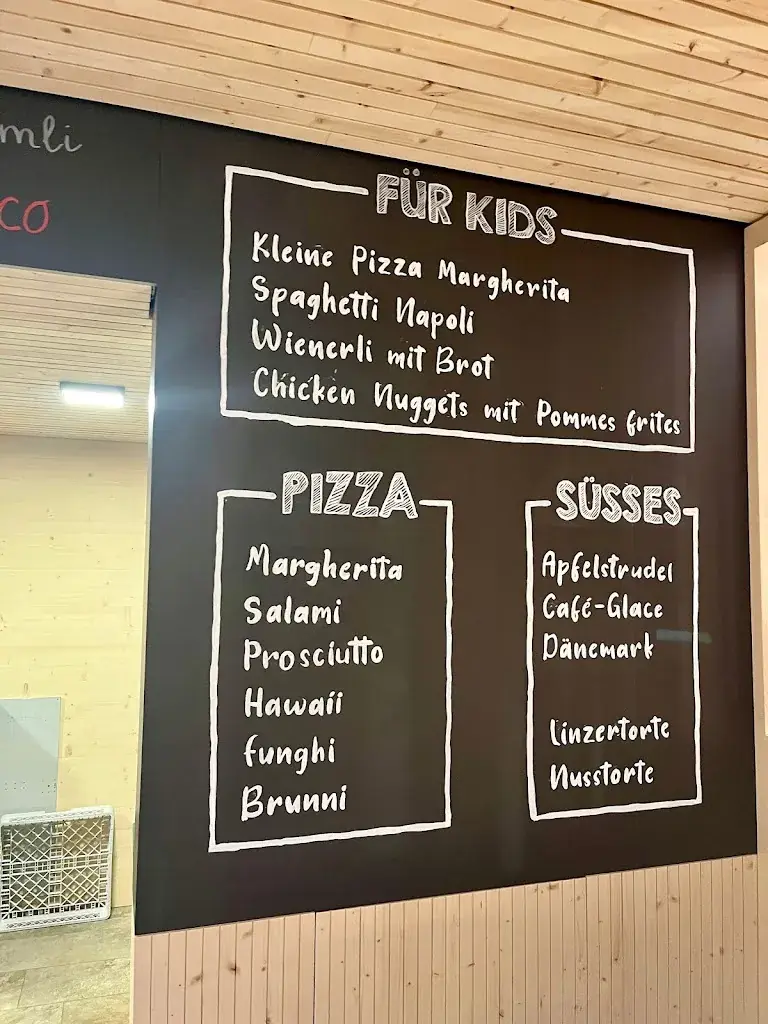 FÜR KIDS
Kleine Pizza Margherita
Spaghetti Napoli
Wienerli mit Brot
Chicken Nuggets mit Pommes frites
PIZZA
Margherita
Salami
Prosciutto
Hawaii
Funghi
Brunni
SÜSSES
Apfelstrudel
Café-Glace
Dänemark
Linzertorte
Nusstorte